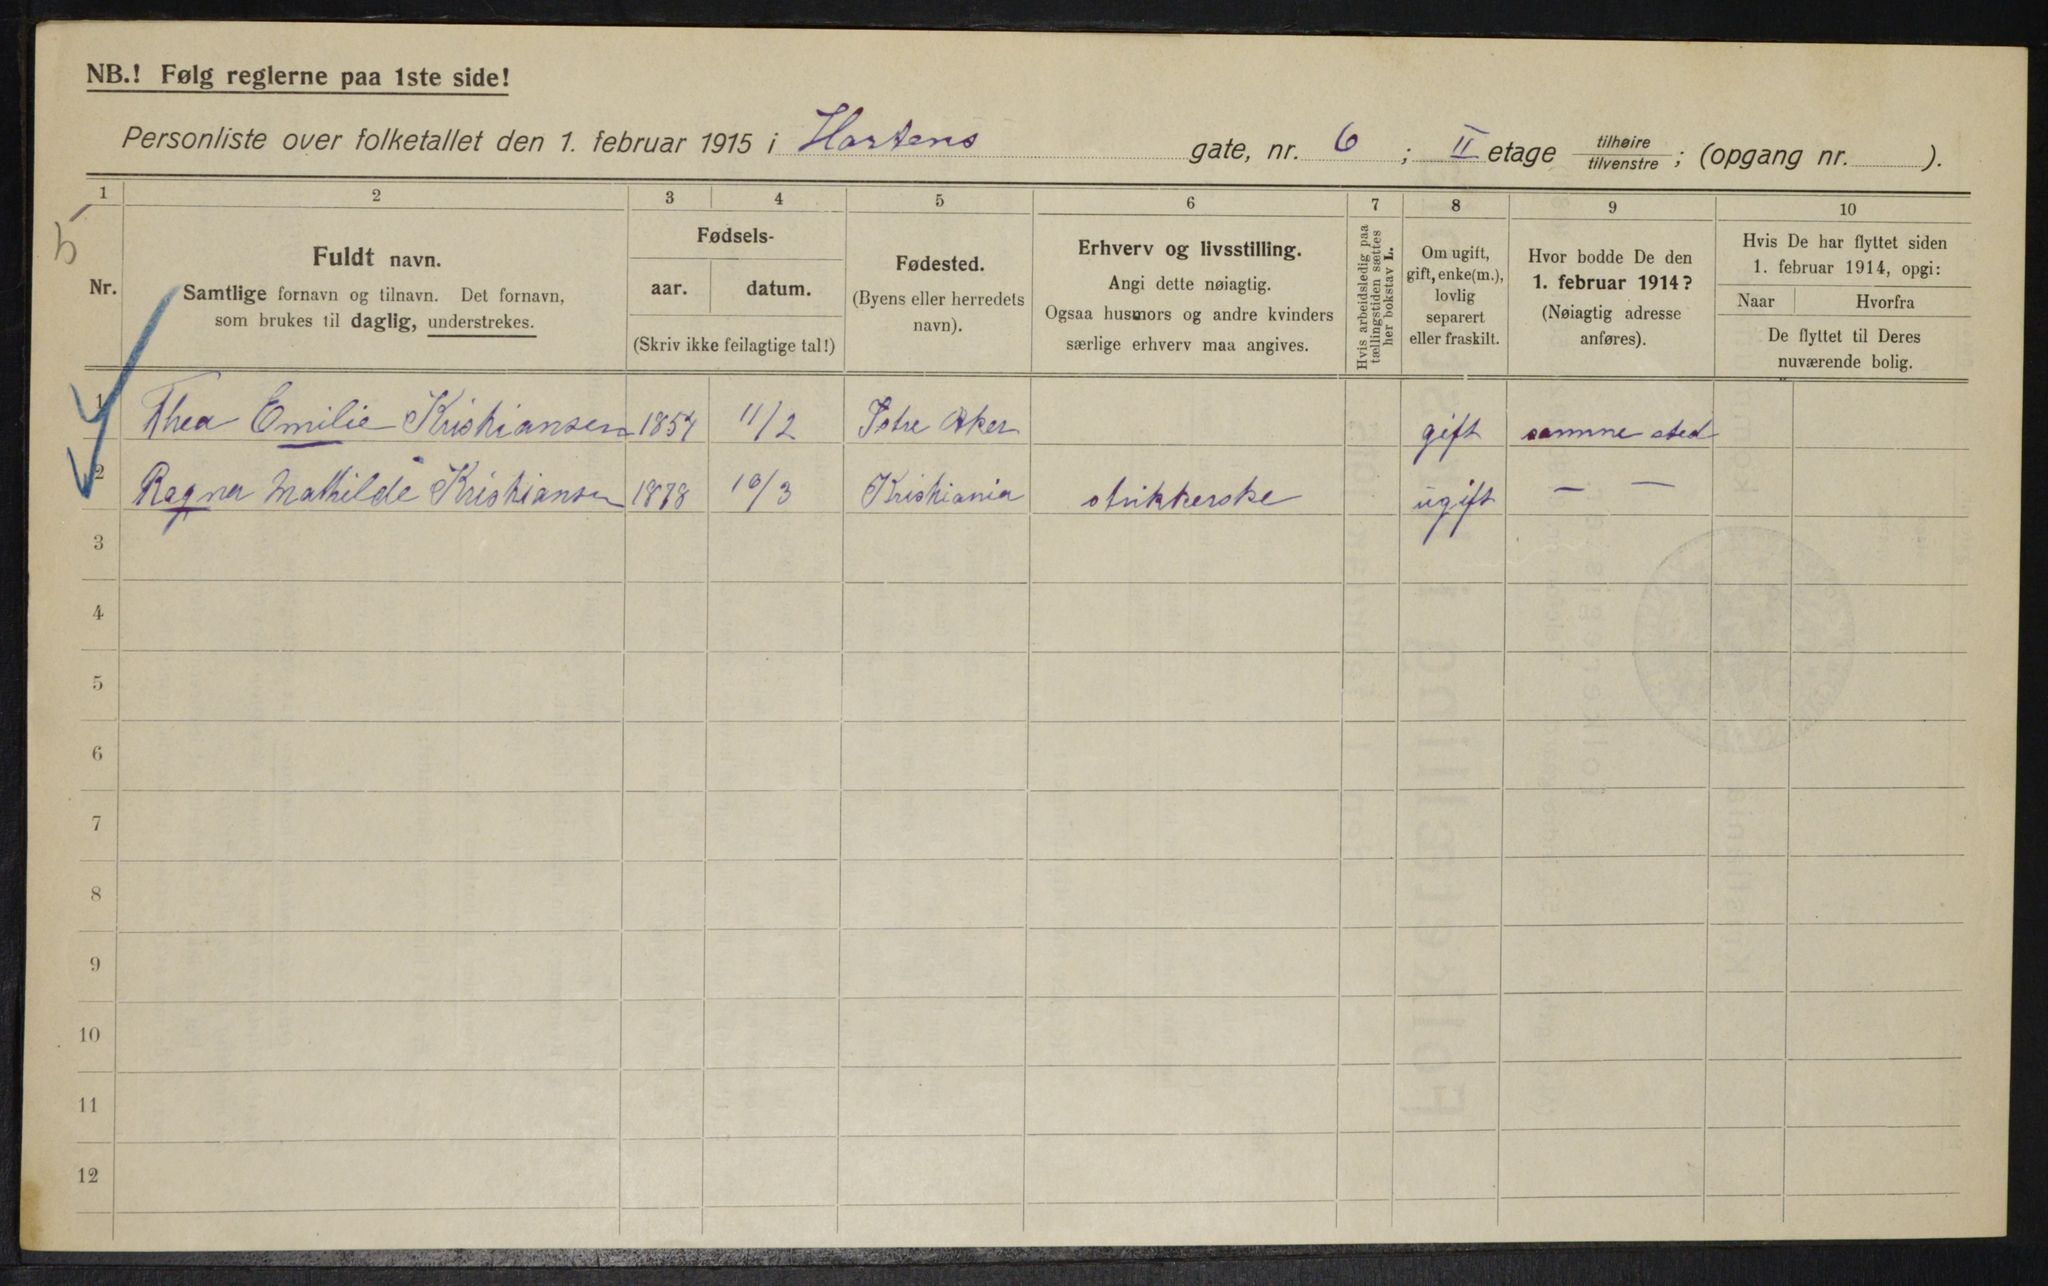 NB.! Følg reglerne paa 1ste side!
Personliste over folketallet den 1. februar 1915 i Hartens gate, nr. 6 ; II etage tilhøire/tilvenstre ; (opgang nr. ).
1 2 3 4 5 6 7 8 9 10
5
Nr.
Fuldt navn.
Samtlige fornavn og tilnavn. Det fornavn,
som brukes til daglig, understrekes.
Fødsels-
aar. datum.
(Skriv ikke feilagtige tal!)
Fødested.
(Byens eller herredets
navn).
Erhverv og livsstilling.
Angi dette nøiagtig.
Ogsaa husmors og andre kvinders
særlige erhverv maa angives.
Hvis arbeidsledig paa
tællingstiden sættes
her bokstav L.
Om ugift,
gift, enke(m.),
lovlig
separert
eller fraskilt.
Hvor bodde De den
1. februar 1914?
(Nøiagtig adresse
anføres).
Hvis De har flyttet siden
1. februar 1914, opgi:
Naar Hvorfra
De flyttet til Deres
nuværende bolig.
1 Thea Emilie Kristiansen 1854 11/2 Østre Aker gift samme sted
2 Ragna Mathilde Kristiansen 1878 16/3 Kristiania strikkerske ugift — —
3
4
5
6
7
8
9
10
11
12